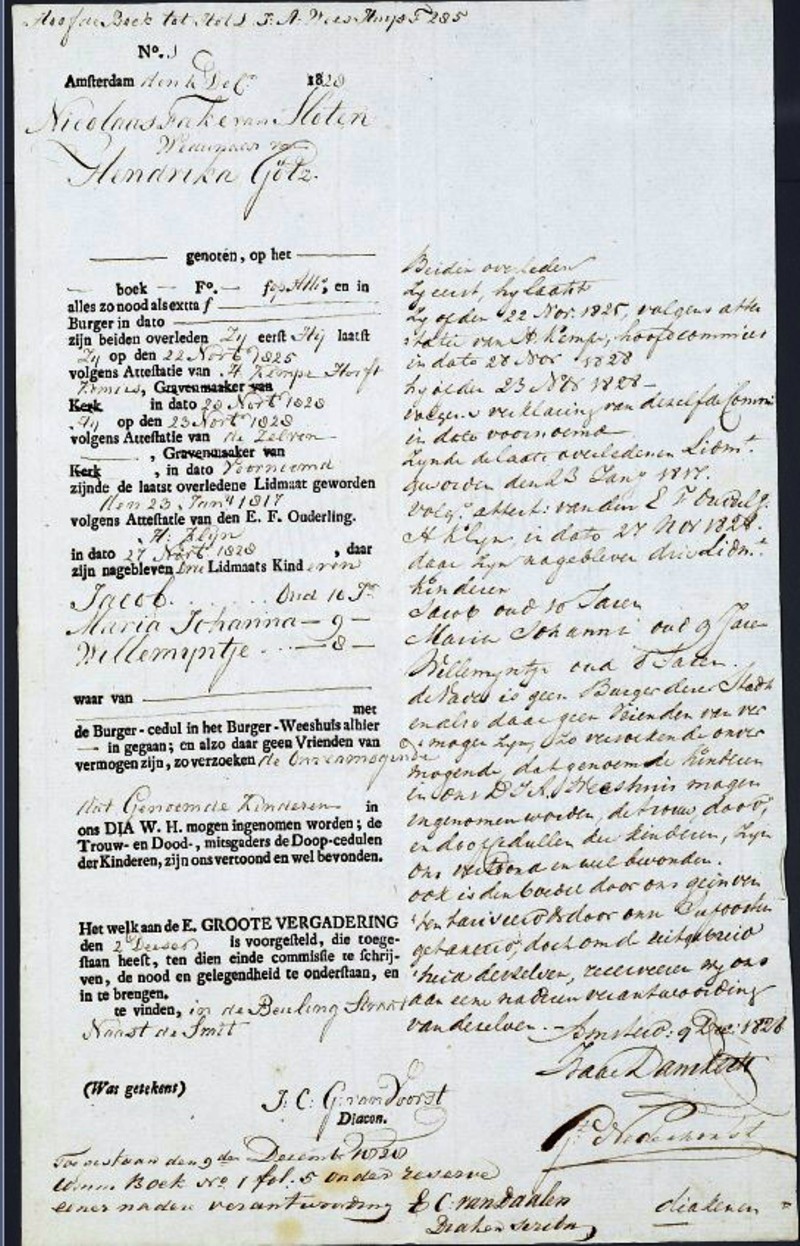 Hoofde Boek tot Hol S. J. A. Wees Huys F 285
No. 1
Amsterdam den 1 Decr. 1828
Nicolaas Fake van Sloten
Weduwnaar van
Hendrika Götz.
genoten, op het
boek Fo. en in
alles zo nood als extra f
Burger in dato
zijn beiden overleden Zy eerst Hij laatst
Zy op den 22 Novr. 1825
volgens Attestatie van H Kempe Hooft
Komies, Gravenmaaker van
Kerk in dato 28 Novr. 1828
Hy op den 23 Novr. 1828
volgens Attestatie van de Zelven
, Gravenmaaker van
Kerk , in dato Voornoemd
zijnde de laatst overledene Lidmaat geworden
den 23 Jany. 1817
volgens Attestatie van den E. F. Ouderling.
H. Klijn
in dato 27 Novr. 1828 , daar
zijn nagebleven Drie Lidmaats Kinderen
Jacob Oud 10 Jr
Maria Johanna — 9 —
Willemyntje — 8 —
waar van
met
de Burger-cedul in het Burger-Weeshuis alhier
in gegaan; en alzo daar geen Vrienden van
vermogen zijn, zo verzoeken de Onvermogende
dat Genoemde Kinderen in
ons DIA W. H. mogen ingenomen worden; de
Trouw- en Dood-, mitsgaders de Doop-cedulen
der Kinderen, zijn ons vertoond en wel bevonden.
Het welk aan de E. GROOTE VERGADERING
den 2 Deeser is voorgesteld, die toege-
staan heeft, ten dien einde commissie te schrij-
ven, de nood en gelegendheid te onderstaan, en
in te brengen.
te vinden, in de Beuling Straat
Naast de Smit
(Was getekent) J: C: G: van Voorst
Diacon.
Toegestaan den 9 der December 1828
Boek No 1 fol: 5 onder reserve
eener nadere verantwoording
E C. van Daalen
Diaken scriba
Beiden overleden
Zy eerst, hy laatst
Zy op den 22 Nov. 1825, volgens attes
tatie van H Kempe, hoofdcommies
in dato 28 Nov 1828
hy op den 23 Nov 1828 —
volgens verklaring van dezelfde Commi
in dato voornoemd
Zynde de laatst overledenen Lidmt.
geworden den 23 Jany 1817.
volgs. attest: van den E F Ouderlg.
H Klyn in dato 27 Nov 1828.
daar zyn nagebleven drie Lidmt.
kinderen
Jacob oud 10 Jaren
Maria Johanna oud 9 Jaren
Willemyntje oud 8 Jaren.
de Vader is geen Burger dezer Stadt
en alzo daar geen Vrienden van ver
mogen zyn, zo verzoeken de onver
mogende, dat genoemde kinderen
in ons D.J.A. Weeshuis mogen
ingenomen worden, de trouw, dood,
en doopcedullen der kinderen, zyn
ons vertoond en wel bevonden.
ook is den boedel door ons geinven
tariseerd & door onze Suppoosten
getaxeerd, doch om de uitgebreid
heid deszelven, reserveeren wy ons
aan eene nadere verantwoording
van deselven. — Amsterd: 9 Dec: 1828
diakenen